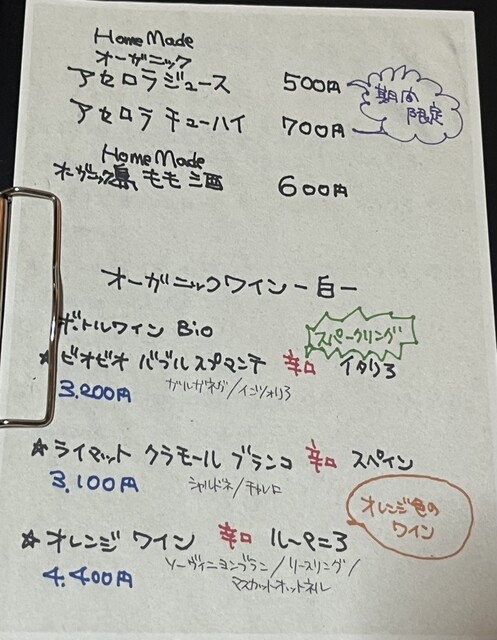 Home Made
オーガニック
アセロラジュース 500円
アセロラ チューハイ 700円
期間
限定
Home Made
オーガニック もも酒 600円
オーガニックワイン -白-
ボトルワイン Bio
スパークリング
★ ビオビオ バブルスプマンテ 辛口 イタリア
3.200円 ガルガネガ/インツォリア
★ ライマット クラモール ブランコ 辛口 スペイン
3.100円 シャルドネ/チャレロ
オレンジ色の
ワイン
★ オレンジ ワイン 辛口 ルーマニア
ソーヴィニヨンブラン/リースリング/
4.400円 マスカットオットネル